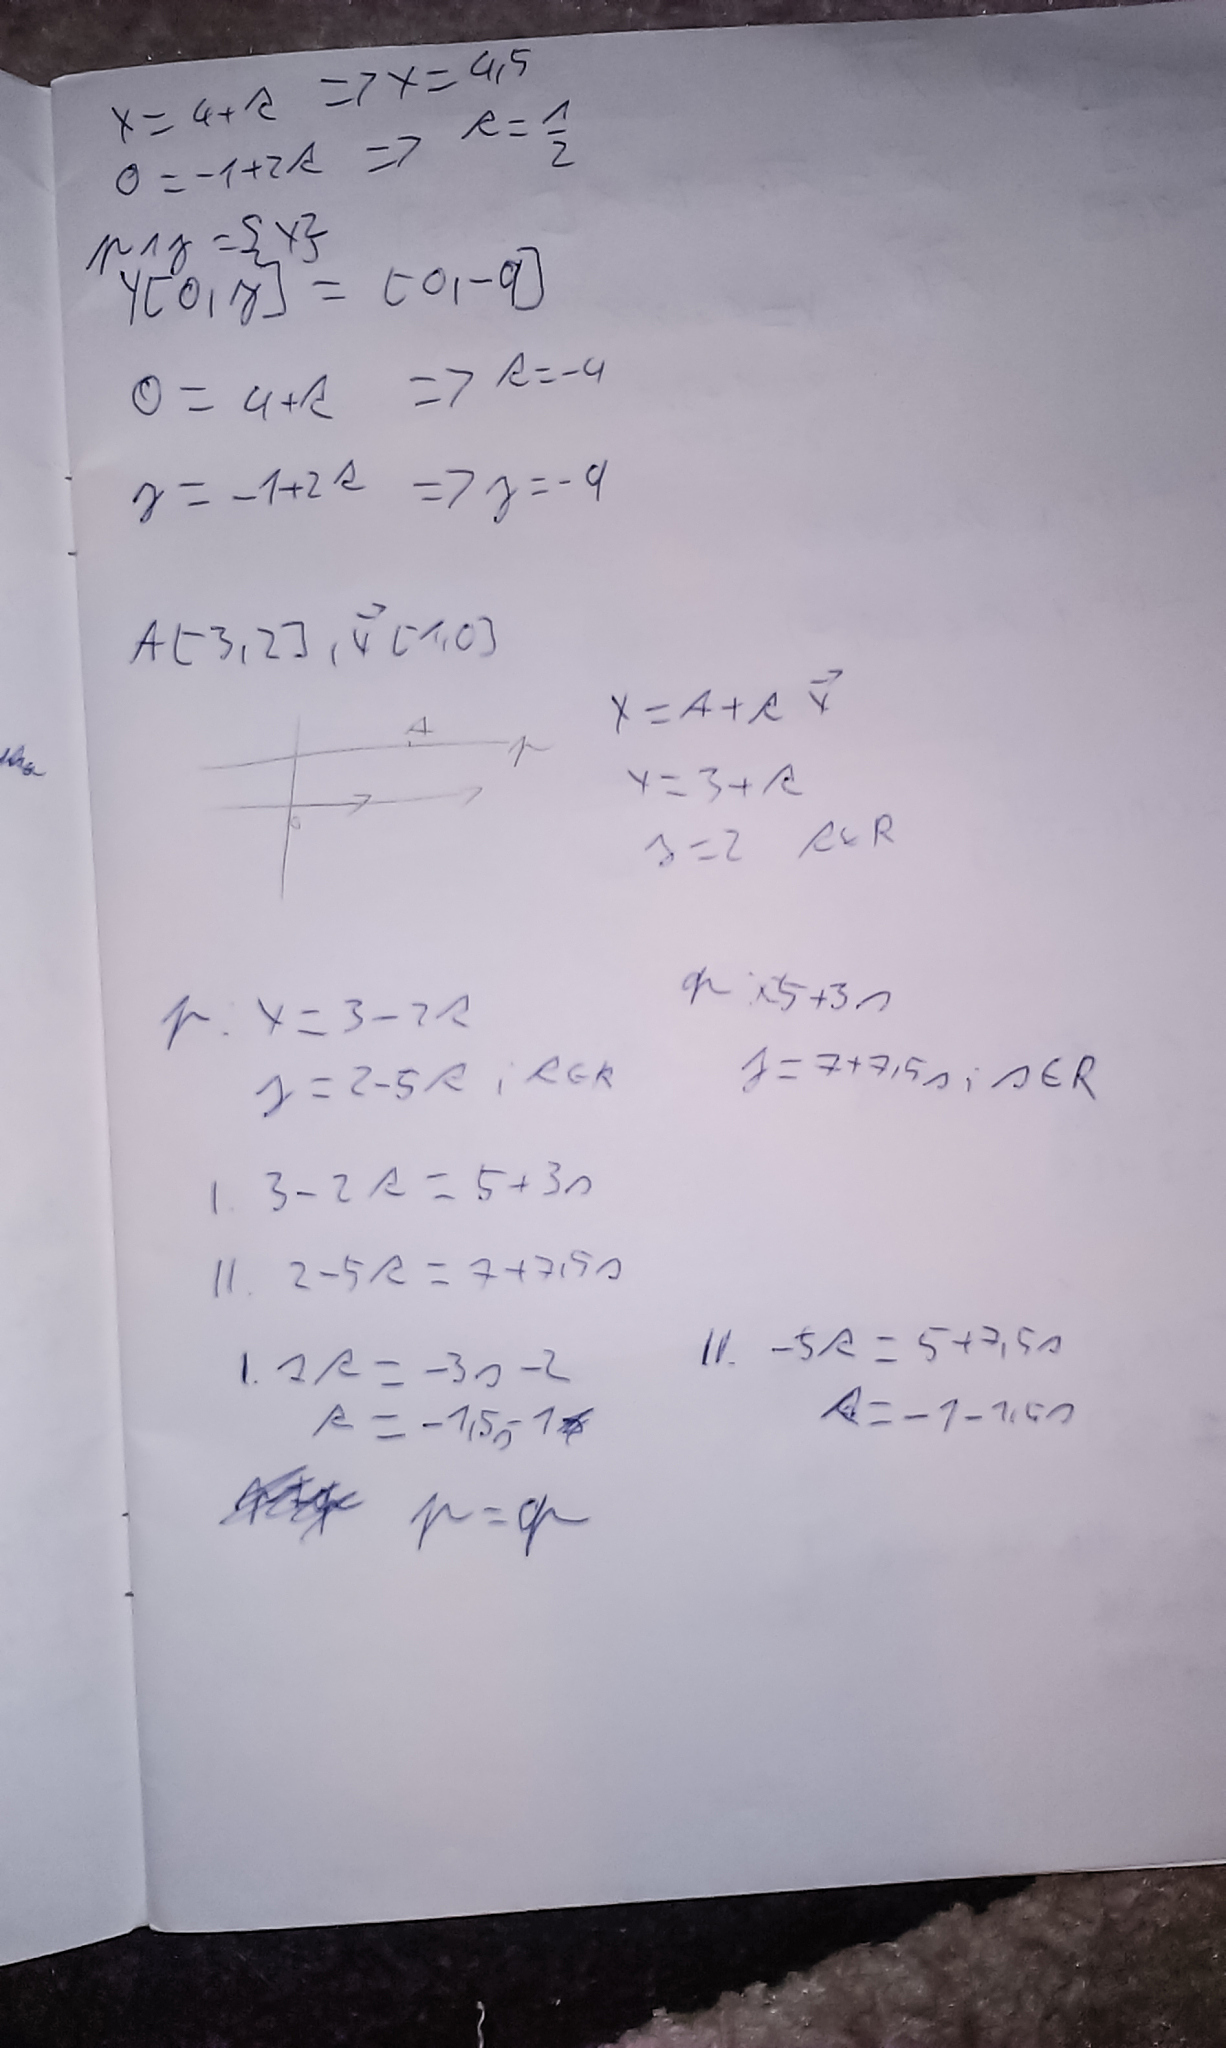 x = 4+k => x = 4,5
0 = -1+2k => k = 1/2
p ∩ y = {Y}
Y[0,y] = [0,-9]
0 = 4+k => k=-4
y = -1+2k => y=-9
A[3,2], v⃗ [1,0]
A
p
0
X = A+k v⃗
x = 3+k
y = 2 k∈R
p: x = 3-2k
y = 2-5k ; k∈R
q: x=5+3s
y = 7+7,5s ; s∈R
I. 3-2k = 5+3s
II. 2-5k = 7+7,5s
I. 2k = -3s-2
k = -1,5s-1
II. -5k = 5+7,5s
k = -1-1,5s
p = q